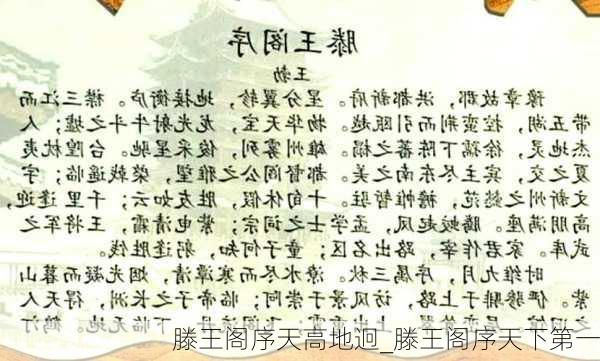 滕王阁序
王勃
豫章故郡，洪都新府。星分翼轸，地接衡庐。襟三江而
带五湖，控蛮荆而引瓯越。物华天宝，龙光射牛斗之墟；人
杰地灵，徐孺下陈蕃之榻。雄州雾列，俊采星驰。台隍枕夷
夏之交，宾主尽东南之美。都督阎公之雅望，棨戟遥临；宇
文新州之懿范，襜帷暂驻。十旬休假，胜友如云；千里逢迎，
高朋满座。腾蛟起凤，孟学士之词宗；紫电清霜，王将军之
武库。家君作宰，路出名区；童子何知，躬逢胜饯。
时维九月，序属三秋。潦水尽而寒潭清，烟光凝而暮山
紫。俨骖騑于上路，访风景于崇阿；临帝子之长洲，得天人
鹤汀
滕王阁序天高地迥_滕王阁序天下第一